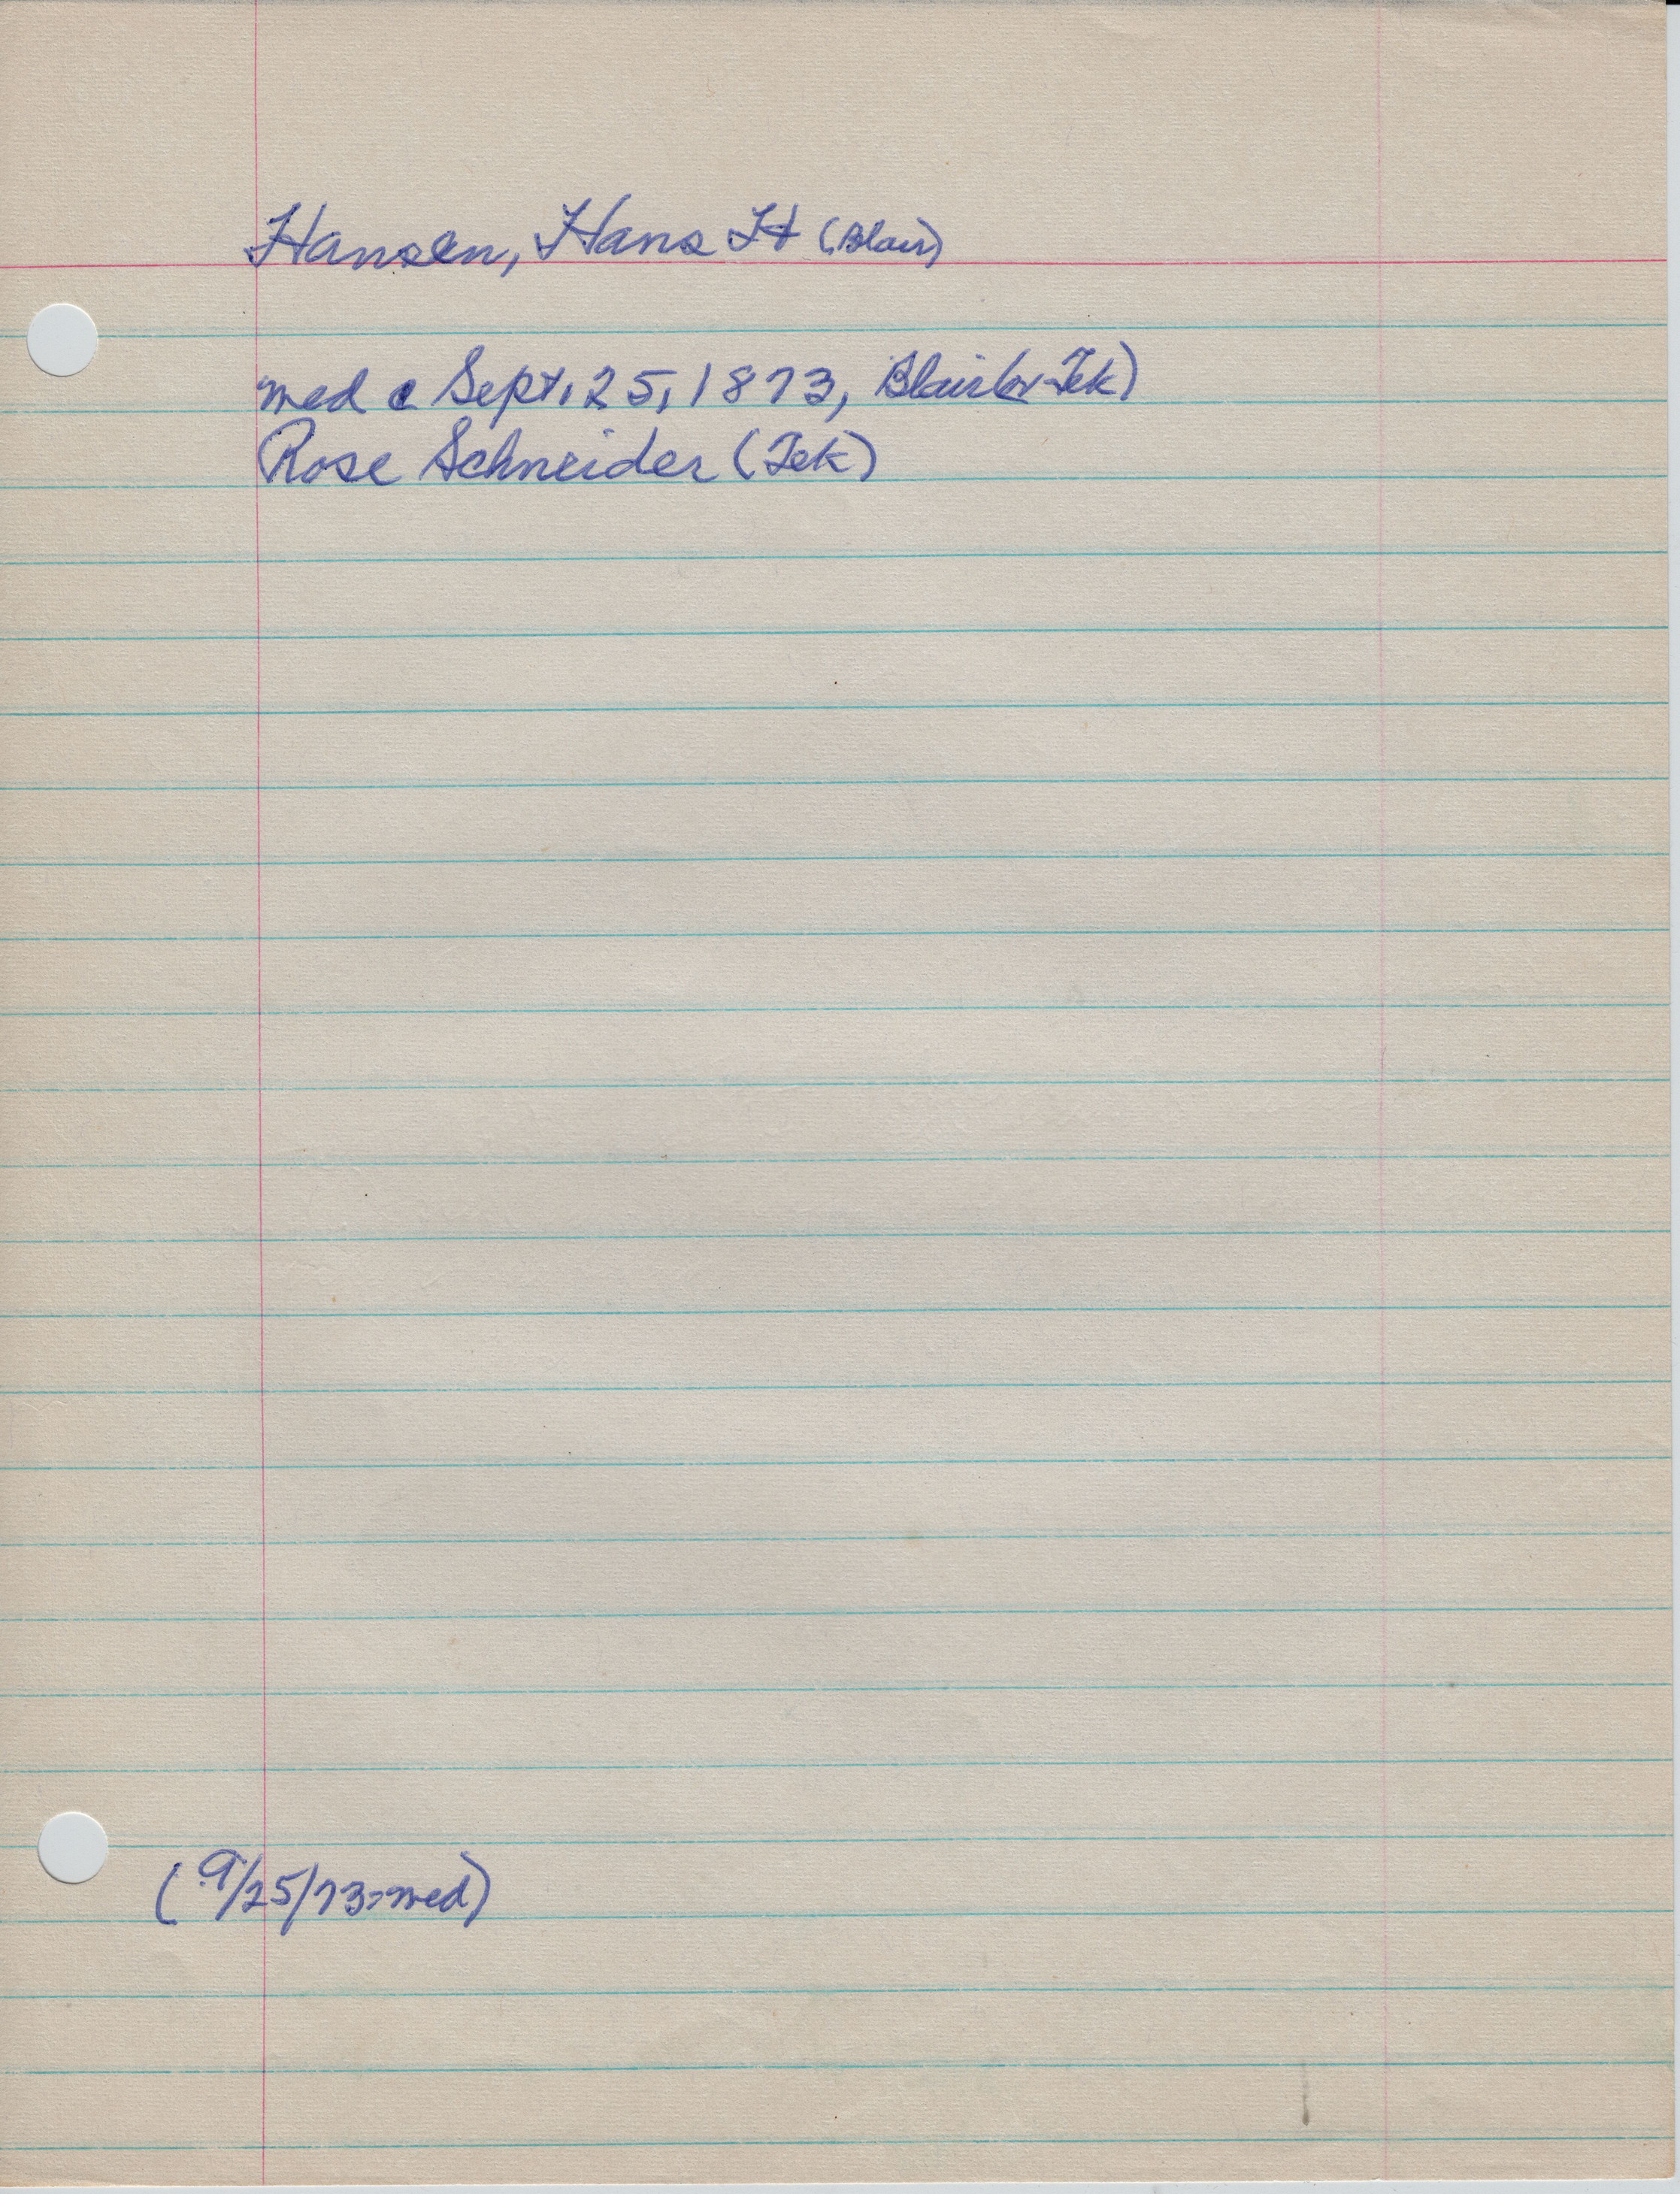 Hansen, Hans H (Blair)
med c Sept. 25, 1873, Blair (or Tek)
Rose Schneider (Tek)
(9/25/73 = med)